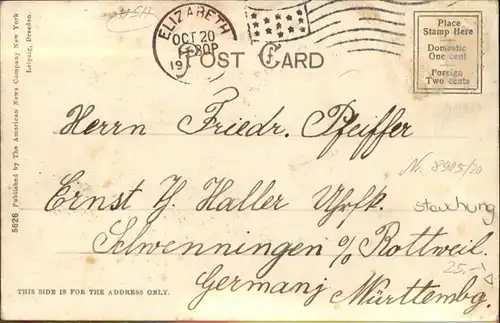 USA
ELIZABETH
OCT 20
30P
19
POST CARD
Place
Stamp Here
Domestic
One cent
Foreign
Two cents
Herrn Friedr. Pfeiffer
Nr. 8905/20
Ernst H. Haller Uhrfk.
stauchung
Schwenningen a/o Rottweil.
25.-
Germany Württembg.
THIS SIDE IS FOR THE ADDRESS ONLY.
5626 Published by The American News Company New York
Leipzig, Dresden.